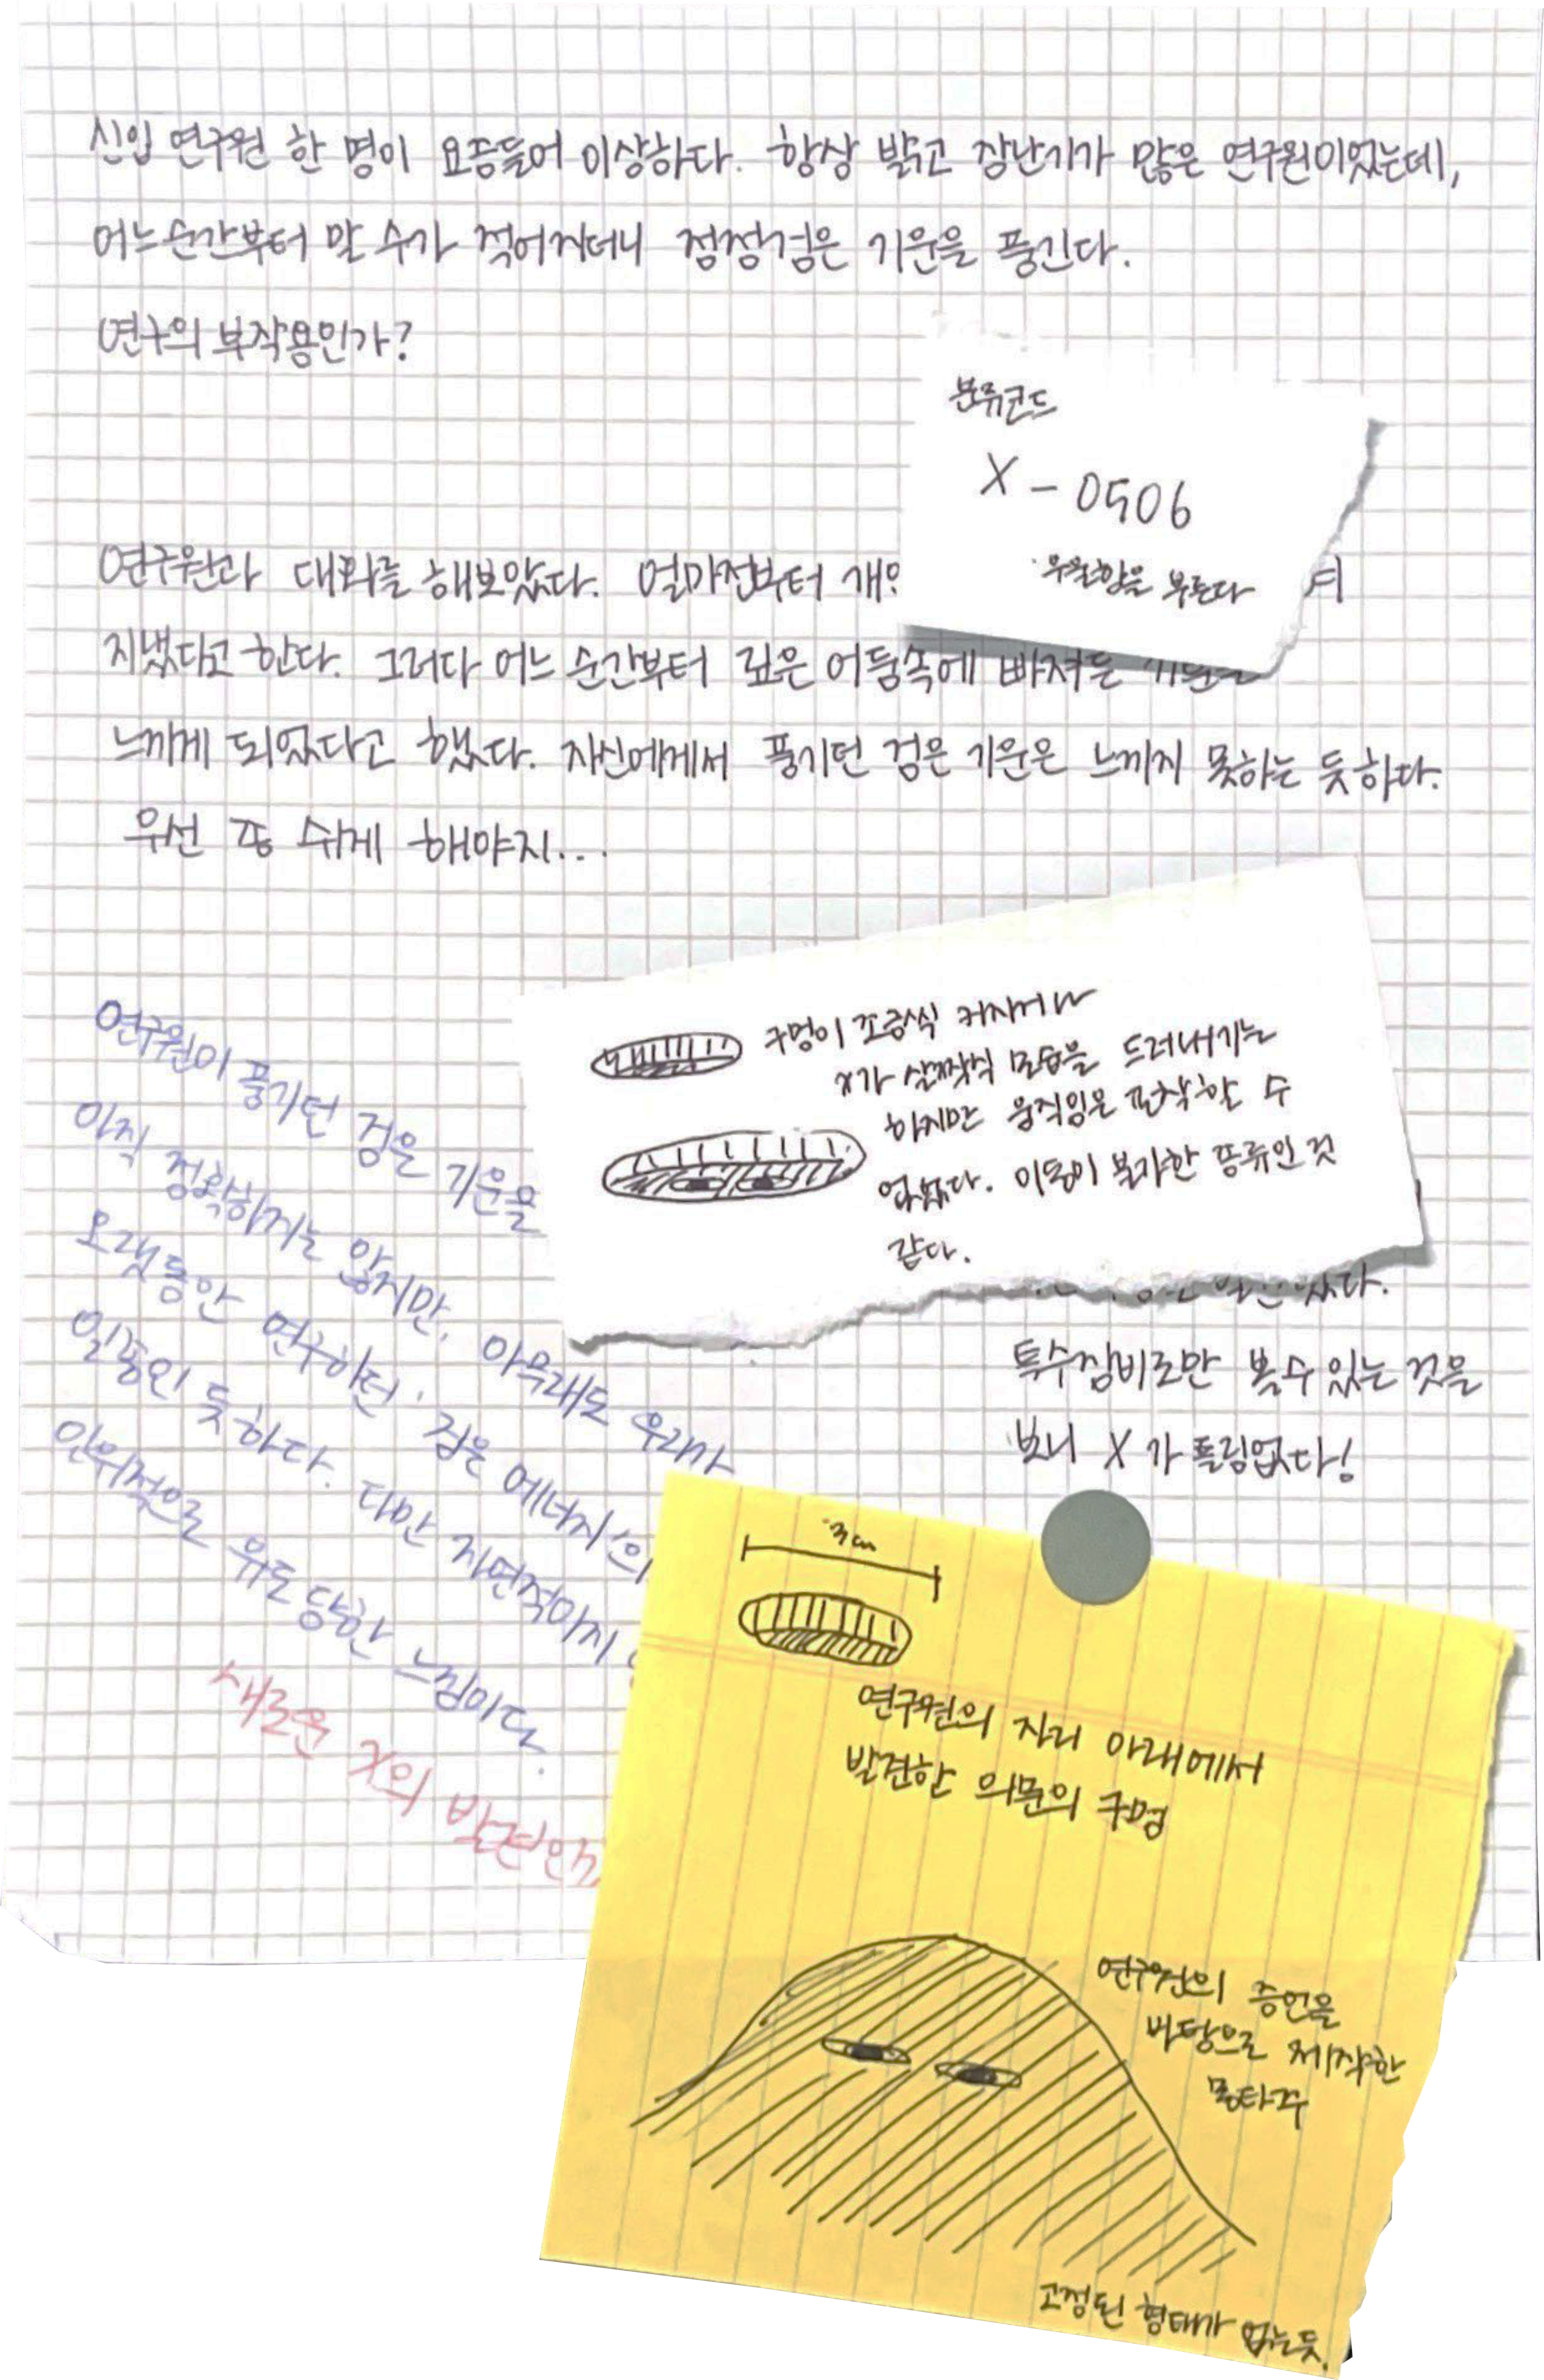 신입 연구원 한 명이 요즘들어 이상하다. 항상 밝고 장난기가 많은 연구원이었는데,
어느순간부터 말 수가 적어지더니 점점검은 기운을 풍긴다.
연구의 부작용인가?
분류코드
X - 0506
우울함을 부른다
연구원과 대화를 해보았다. 얼마전부터
지냈다고 한다. 그러다 어느 순간부터 깊은 어둠속에 빠져든
느끼게 되었다고 했다. 자신에게서 풍기던 검은 기운은 느끼지 못하는 듯하다.
우선 좀 쉬게 해야지...
구멍이 조금씩 커지거나
X가 살짝씩 모습을 드러내기는
하지만 움직임은 포착할 수
없었다. 이동이 불가한 종류인 것
같다.
연구원이 풍기던 검은 기운을
아직 정확하지는 않지만, 아무래도 우리가
오랫동안 연구하던 '검은 에너지'의
일종인 듯하다. 다만 자연적이지
인위적으로 유도당한 느낌이다.
새로운 X의 발견인가
특수장비로만 볼 수 있는 것을
보니 X가 틀림없다!
3cm
연구원의 자리 아래에서
발견한 의문의 구멍
연구원의 증언을
바탕으로 제작한
몽타주
고정된 형태가 없는듯.